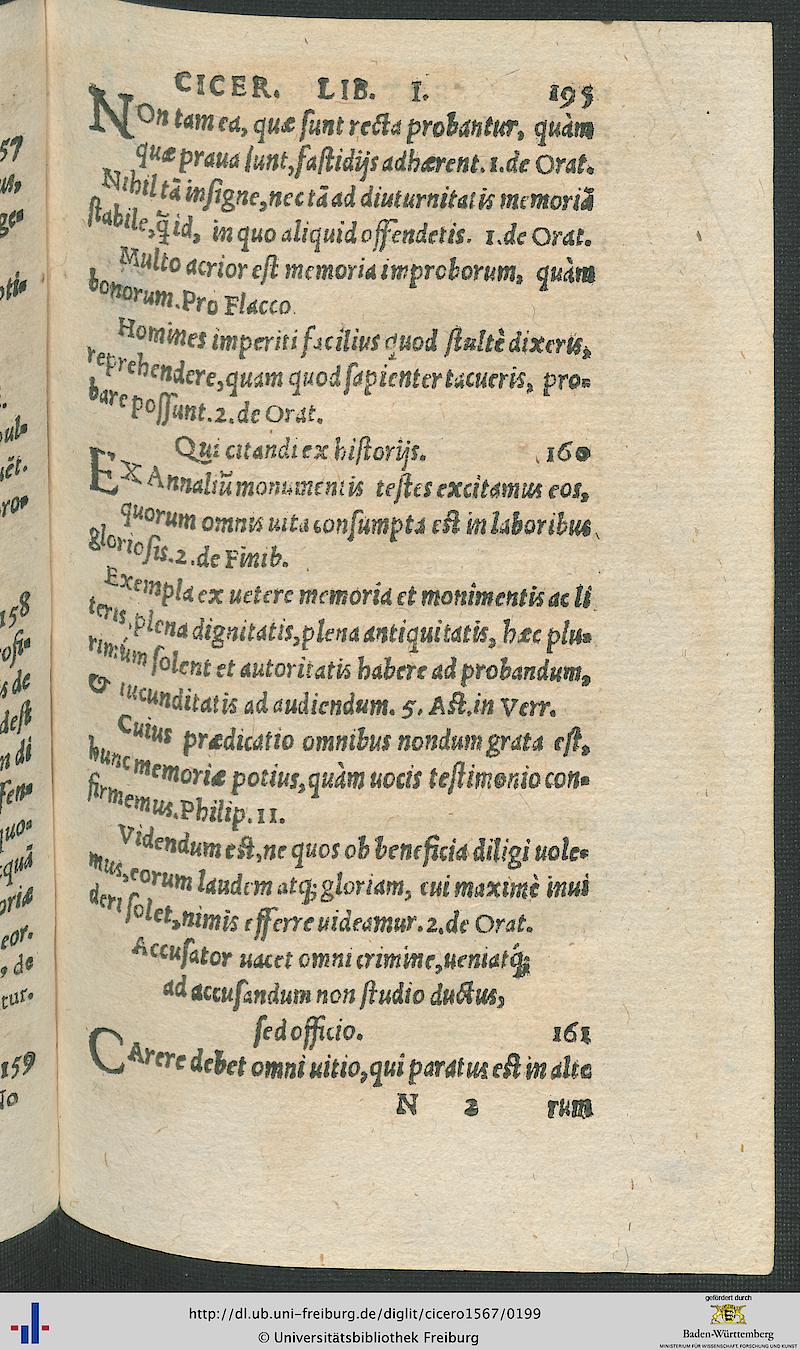 CICER. LIB. I. 195
NOn tam ea, quæ ſunt recta probantur, quàm
quæ praua ſunt, faſtidijs adhærent. 1. de Orat.
Nihil tā inſigne, nec tā ad diuturnitatis memoriā
ſtabile, q̃ id, in quo aliquid offendetis. 1. de Orat.
Multo acrior eſt memoria improborum, quàm
bonorum. Pro Flacco.
Homines imperiti facilius quod ſtultè dixeris,
reprehendere, quam quod ſapienter tacueris, pro=
bare poſſunt. 2. de Orat.
Qui citandi ex hiſtorijs. 160
EX Annaliū monumentis teſtes excitamus eos,
quorum omnis uita conſumpta eſt in laboribus
glorioſis. 2. de Finib.
Exempla ex uetere memoria et monimentis ac li
teris, plena dignitatis, plena antiquitatis, hæc plu=
rimúm ſolent et autoritatis habere ad probandum,
& iucunditatis ad audiendum. 5. Act. in Verr.
Cuius prædicatio omnibus nondum grata eſt,
hunc memoriæ potius, quàm uocis teſtimonio con=
firmemus. Philip. 11.
Videndum eſt, ne quos ob beneficia diligi uole=
mus, eorum laudem atq; gloriam, cui maximè inui
deri ſolet, nimis efferre uideamur. 2. de Orat.
Accuſator uacet omni crimine, ueniatq́;
ad accuſandum non ſtudio ductus,
ſed officio. 161
CArere debet omni uitio, qui paratus eſt in alte
N 2 rum
57
us,
gen
oti=
.
ul=
uēt.
ro=
158
ofi=
s de
deſt
n di
ſen=
quo=
quā
oriæ
eor.
, de
tur.
159
No
http://dl.ub.uni-freiburg.de/diglit/cicero1567/0199
© Universitätsbibliothek Freiburg
gefördert durch
Baden-Württemberg
MINISTERIUM FÜR WISSENSCHAFT, FORSCHUNG UND KUNST